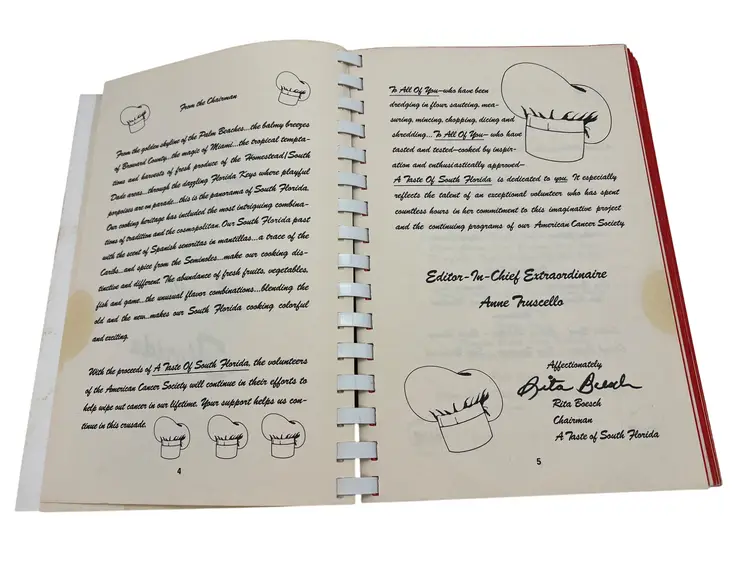 From the Chairman
From the golden skyline of the Palm Beaches...the balmy breezes
of Broward County...the magic of Miami...the tropical tempta-
tions and harvests of fresh produce of the Homestead/South
Dade areas...through the dazzling Florida Keys where playful
porpoises are on parade...this is the panorama of South Florida.
Our cooking heritage has included the most intriguing combina-
tions of tradition and the cosmopolitan. Our South Florida past
with the scent of Spanish senoritas in mantillas...a trace of the
Caribs...and spice from the Seminoles...make our cooking dis-
tinctive and different. The abundance of fresh fruits, vegetables,
fish and game...the unusual flavor combinations...blending the
old and the new...makes our South Florida cooking colorful
and exciting.
With the proceeds of A Taste Of South Florida, the volunteers
of the American Cancer Society will continue in their efforts to
help wipe out cancer in our lifetime. Your support helps us con-
tinue in this crusade.
4
To All Of You-who have been
dredging in flour, sauteing, mea-
suring, mincing, chopping, dicing and
shredding...To All Of You- who have
tasted and tested-cooked by inspir-
ation and enthusiastically approved-
A Taste Of South Florida is dedicated to you. It especially
reflects the talent of an exceptional volunteer who has spent
countless hours in her commitment to this imaginative project
and the continuing programs of our American Cancer Society
Editor-In-Chief Extraordinaire
Anne Truscello
Affectionately
Rita Boesch
Rita Boesch
Chairman
A Taste of South Florida
5